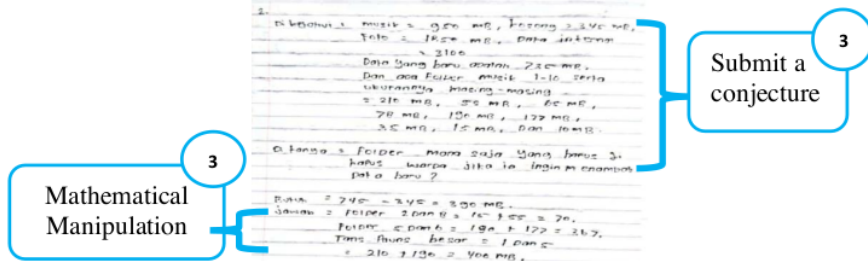 2.
Diketahui : musik = 950 MB, kosong = 345 MB,
Foto = 1850 MB, Data internal
= 3100
Data yang baru adalah 735 MB.
Dan ada Folder musik 1-10 serta
ukurannya masing-masing
= 210 MB, 55 MB, 65 MB,
78 MB, 190 MB, 177 MB,
35 MB, 15 MB, Dan 10 MB.
Ditanya = Folder mana saja yang harus di
hapus Warda jika ia ingin menambah
Data baru ?
= 745 - 345 = 390 MB.
Jawab = Folder 2 Dan 8 = 15 + 55 = 70,
Folder 5 Dan 6 = 190 + 177 = 367,
besar = 1 Dan 5
= 210 + 190 = 400 MB.
3
Submit a
conjecture
3
Mathematical
Manipulation